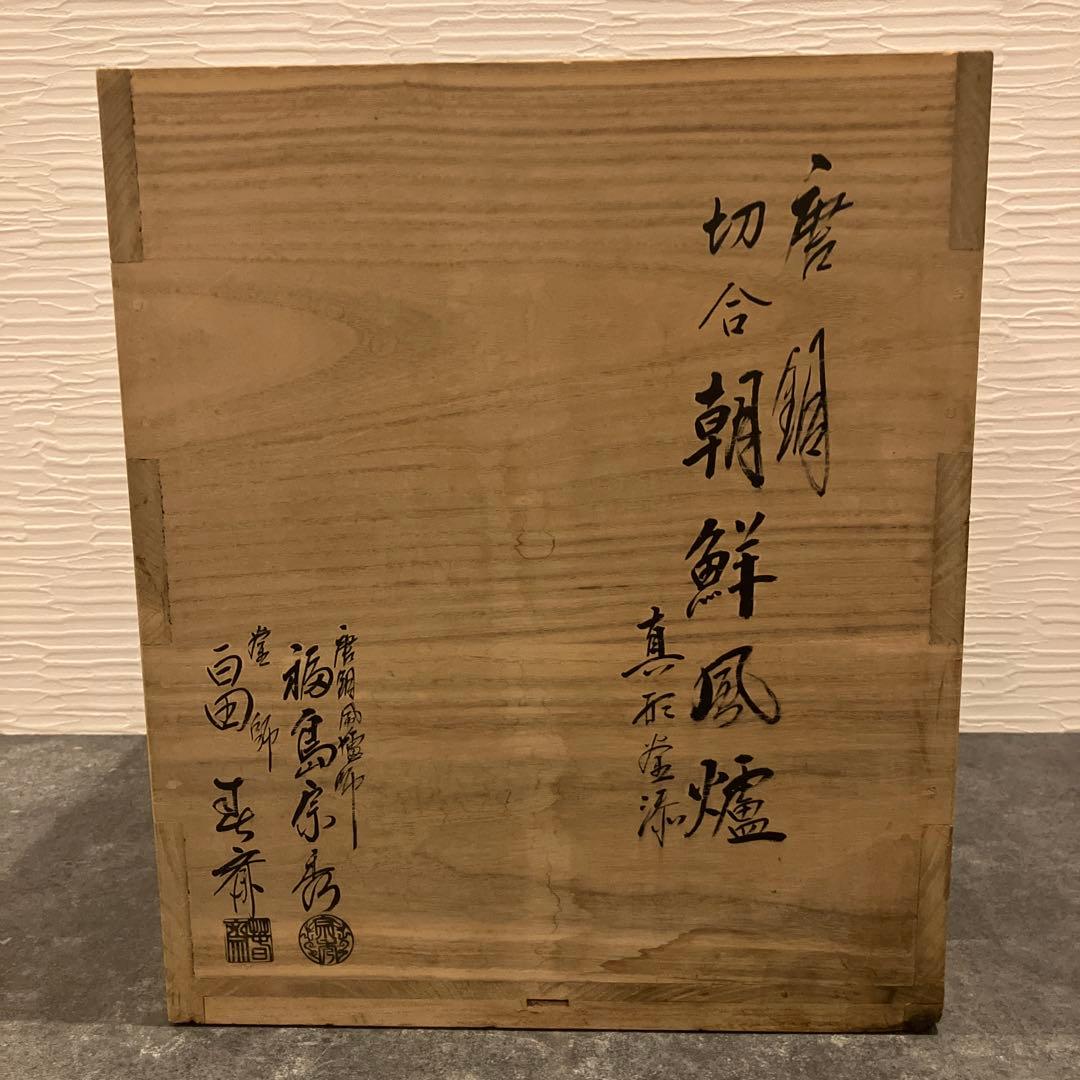 唐銅
切合朝鮮風爐
真形釜添
唐銅風爐師
福島宗秀
釜師
畠春斎